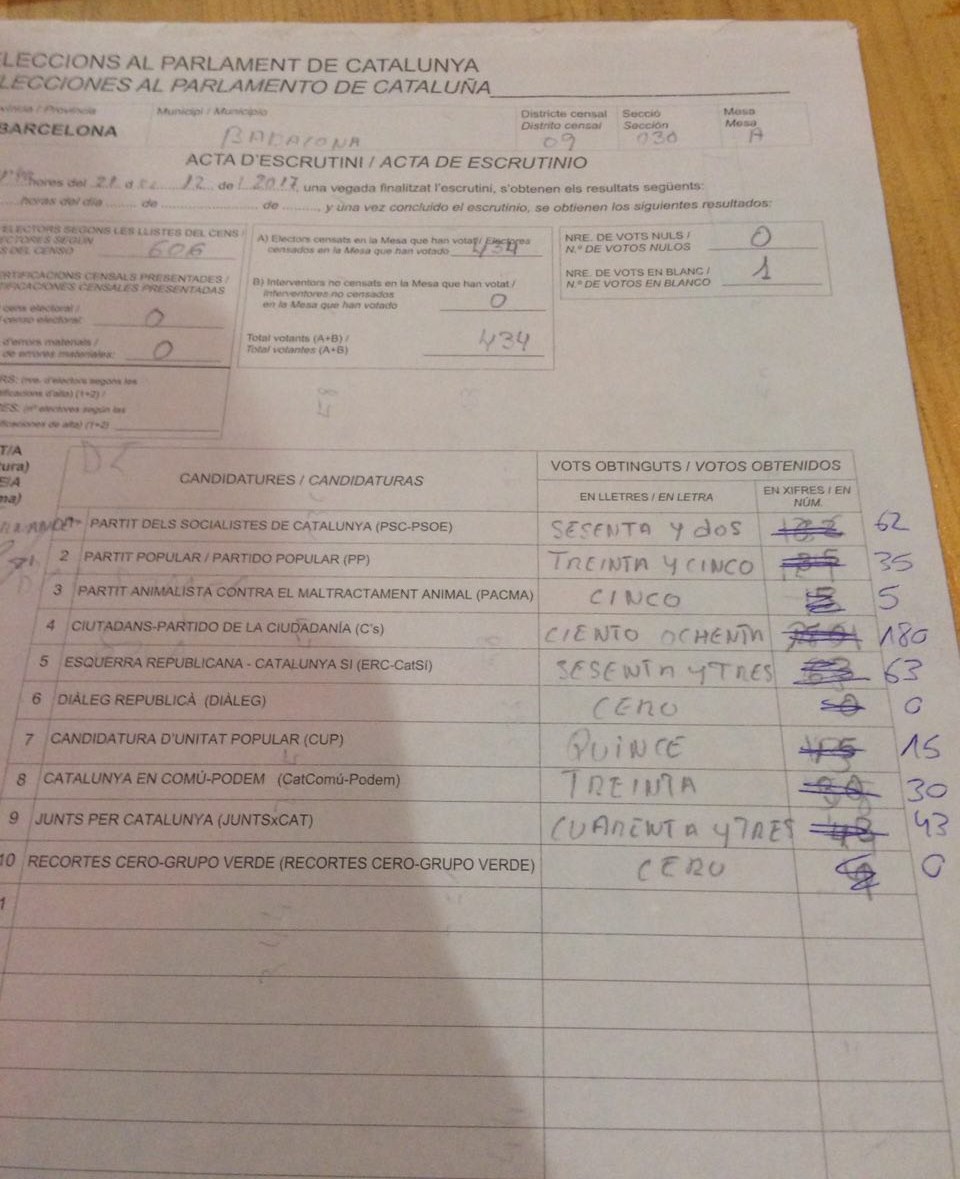 LECCIONS AL PARLAMENT DE CATALUNYA
LECCIONES AL PARLAMENTO DE CATALUÑA
Província / Provincia Municipi / Municipio Districte censal Secció Mesa
Distrito censal Sección Mesa
BARCELONA BADALONA 09 030 A
ACTA D'ESCRUTINI / ACTA DE ESCRUTINIO
hores del 21 d 12 de 2017, una vegada finalitzat l'escrutini, s'obtenen els resultats següents:
horas del día ........ de .................... de ........, y una vez concluido el escrutinio, se obtienen los siguientes resultados:
ELECTORS SEGONS LES LLISTES DEL CENS /
ECTORES SEGÚN
S DEL CENSO 606
ERTIFICACIONS CENSALS PRESENTADES /
TIFICACIONES CENSALES PRESENTADAS
cens electoral /
censo electoral: 0
d'errors materials /
de errores materiales: 0
RS: (nre. d'electors segons les
tificacions d'alta) (1+2) /
RES: (nº electores según las
ificaciones de alta) (1+2)
A) Electors censats en la Mesa que han votat / Electores
censados en la Mesa que han votado 434
B) Interventors no censats en la Mesa que han votat /
Interventores no censados
en la Mesa que han votado 0
Total votants (A+B) /
Total votantes (A+B) 434
NRE. DE VOTS NULS /
N.º DE VOTOS NULOS 0
NRE. DE VOTS EN BLANC /
N.º DE VOTOS EN BLANCO 1
T/A
tura)
E/A
ma)
CANDIDATURES / CANDIDATURAS VOTS OBTINGUTS / VOTOS OBTENIDOS
EN LLETRES / EN LETRA EN XIFRES / EN NÚM.
PARTIT DELS SOCIALISTES DE CATALUNYA (PSC-PSOE) SESENTA Y DOS 62
2 PARTIT POPULAR / PARTIDO POPULAR (PP) TREINTA Y CINCO 35
3 PARTIT ANIMALISTA CONTRA EL MALTRACTAMENT ANIMAL (PACMA) CINCO 5
4 CIUTADANS-PARTIDO DE LA CIUDADANÍA (C's) CIENTO OCHENTA 180
5 ESQUERRA REPUBLICANA - CATALUNYA SI (ERC-CatSí) SESENTA Y TRES 63
6 DIÀLEG REPUBLICÀ (DIÀLEG) CERO 0
7 CANDIDATURA D'UNITAT POPULAR (CUP) QUINCE 15
8 CATALUNYA EN COMÚ-PODEM (CatComú-Podem) TREINTA 30
9 JUNTS PER CATALUNYA (JUNTSxCAT) CUARENTA Y TRES 43
10 RECORTES CERO-GRUPO VERDE (RECORTES CERO-GRUPO VERDE) CERO 0
1